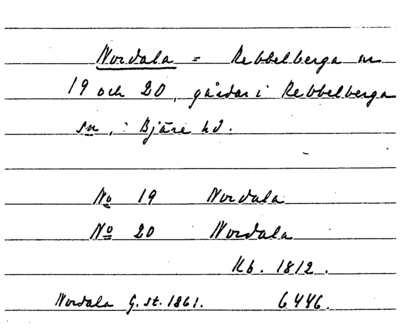 Nordala = Rebbelberga nr
19 och 20, gårdar i Rebbelberga
sn, i Bjäre hd.
No 19 Nordala
No 20 Nordala
Kb. 1812.
Nordala G. st. 1861. 6446.